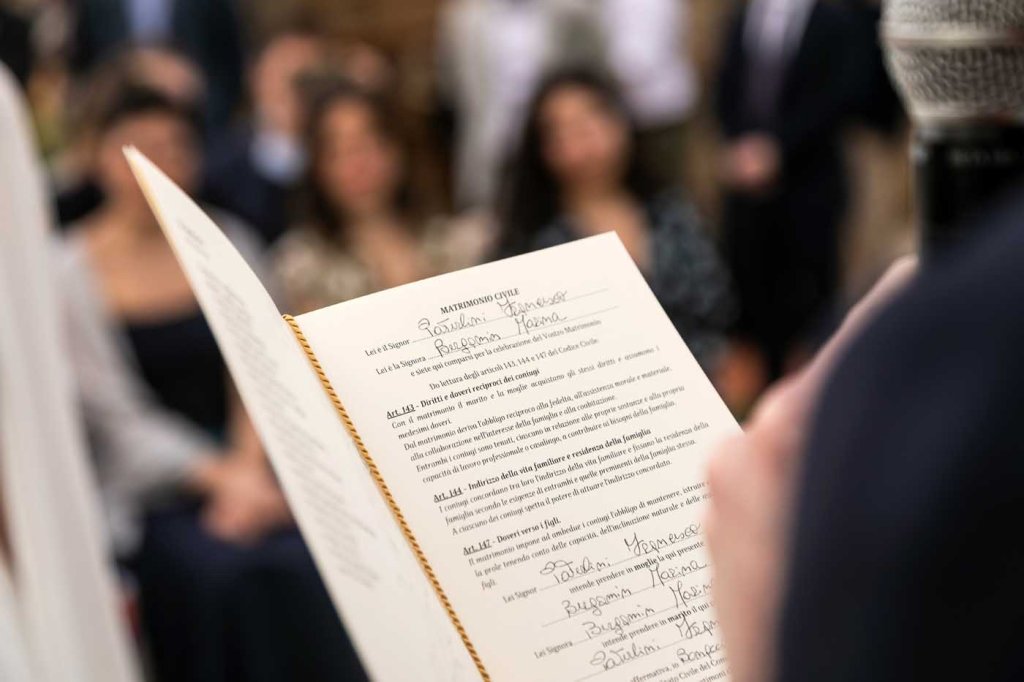 MATRIMONIO CIVILE
Lei è il Signor Paturlini Francesco
Lei è la Signora Bergamin Marina
e siete qui comparsi per la celebrazione del Vostro Matrimonio
Do lettura degli articoli 143, 144 e 147 del Codice Civile.
Art. 143 - Diritti e doveri reciproci dei coniugi
Con il matrimonio il marito e la moglie acquistano gli stessi diritti e assumono i
medesimi doveri.
Dal matrimonio deriva l'obbligo reciproco alla fedeltà, all'assistenza morale e materiale,
alla collaborazione nell'interesse della famiglia e alla coabitazione.
Entrambi i coniugi sono tenuti, ciascuno in relazione alle proprie sostanze e alla propria
capacità di lavoro professionale o casalingo, a contribuire ai bisogni della famiglia.
Art. 144 - Indirizzo della vita familiare e residenza della famiglia
I coniugi concordano tra loro l'indirizzo della vita familiare e fissano la residenza della
famiglia secondo le esigenze di entrambi e quelle preminenti della famiglia stessa.
A ciascuno dei coniugi spetta il potere di attuare l'indirizzo concordato.
Art. 147 - Doveri verso i figli.
Il matrimonio impone ad ambedue i coniugi l'obbligo di mantenere, istruire
la prole tenendo conto delle capacità, dell'inclinazione naturale e delle
figli.
Lei Signor Paturlini Francesco
intende prendere in moglie la qui presente
Bergamin Marina
Lei Signora Bergamin Marina
intende prendere in marito il qui
Paturlini
affermativa, in
Civile del Com